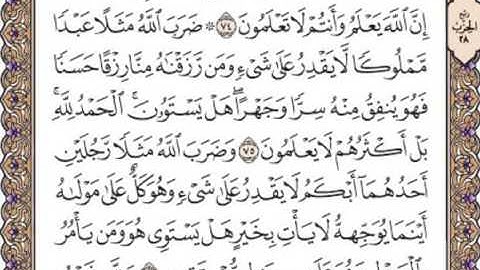 إِنَّ ٱللَّهَ يَعْلَمُ وَأَنتُمْ لَا تَعْلَمُونَ ٧٤ ۞ ضَرَبَ ٱللَّهُ مَثَلًا عَبْدًا
مَّمْلُوكًا لَّا يَقْدِرُ عَلَىٰ شَىْءٍ وَمَن رَّزَقْنَٰهُ مِنَّا رِزْقًا حَسَنًا
فَهُوَ يُنفِقُ مِنْهُ سِرًّا وَجَهْرًا ۖ هَلْ يَسْتَوُۥنَ ۚ ٱلْحَمْدُ لِلَّهِ ۚ
بَلْ أَكْثَرُهُمْ لَا يَعْلَمُونَ ٧٥ وَضَرَبَ ٱللَّهُ مَثَلًا رَّجُلَيْنِ
أَحَدُهُمَآ أَبْكَمُ لَا يَقْدِرُ عَلَىٰ شَىْءٍ وَهُوَ كَلٌّ عَلَىٰ مَوْلَىٰهُ
أَيْنَمَا يُوَجِّههُّ لَا يَأْتِ بِخَيْرٍ هَلْ يَسْتَوِى هُوَ وَمَن يَأْمُرُ
ربع
الحزب
٢٨